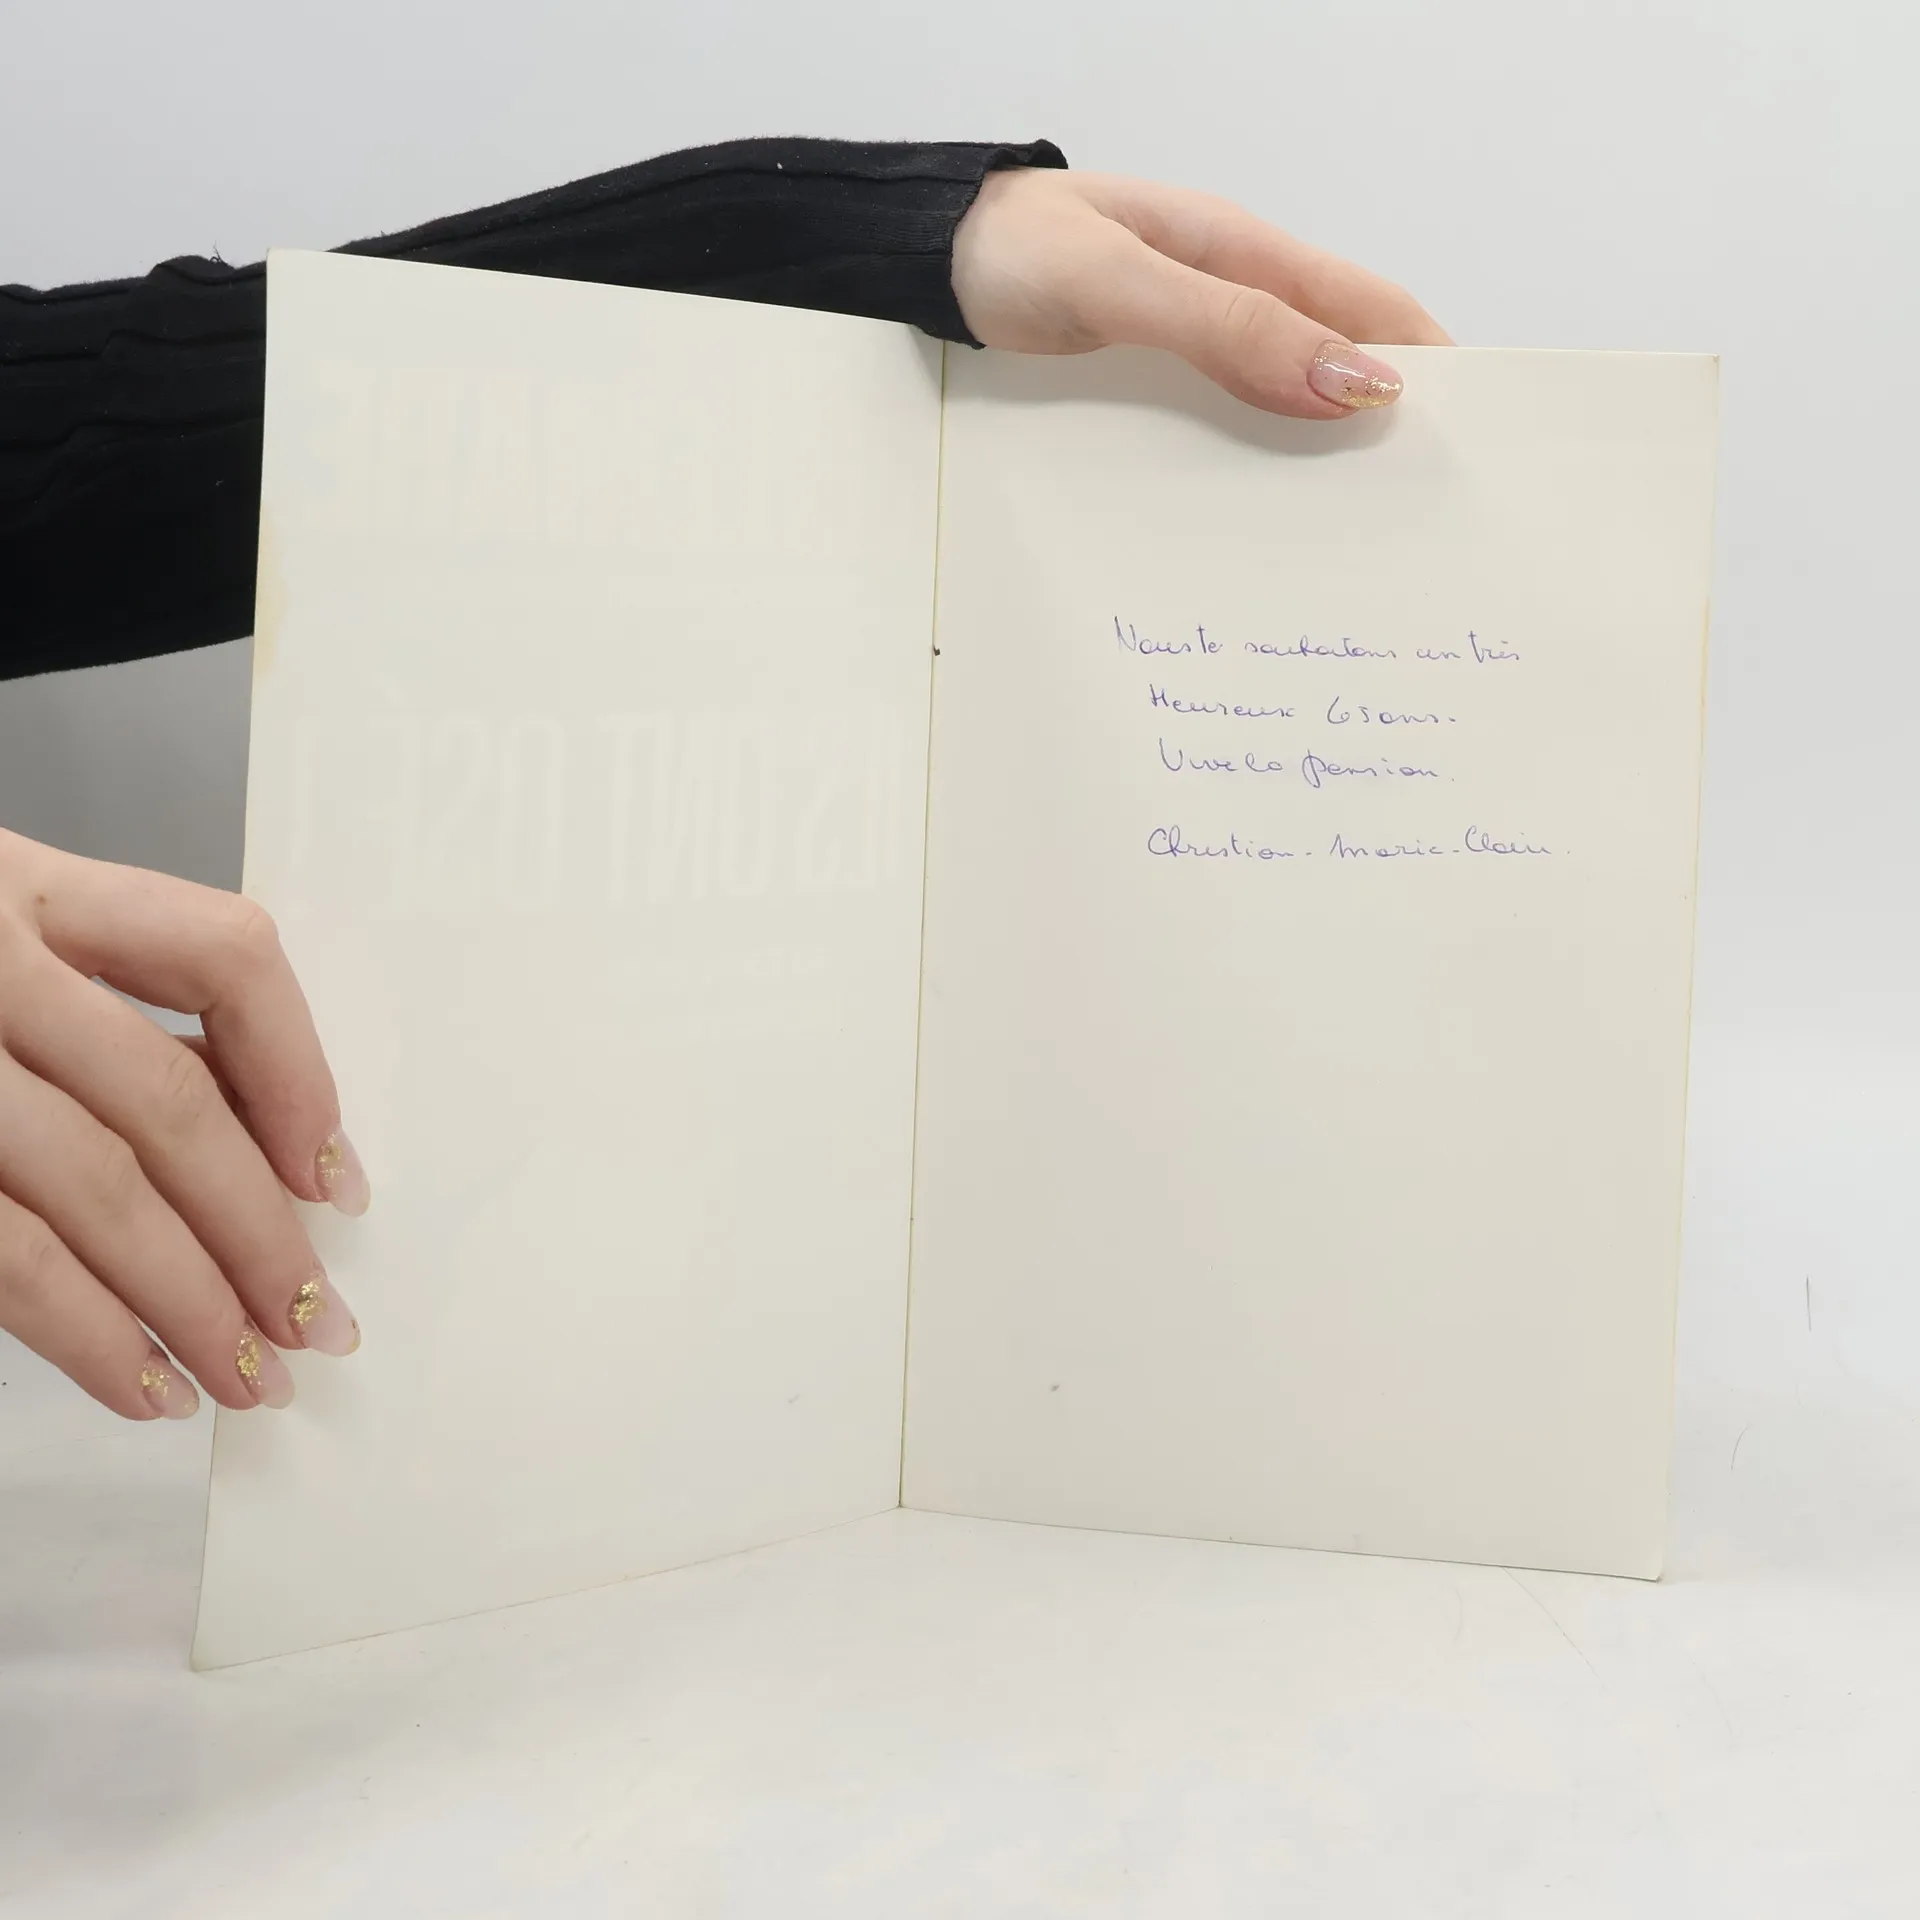 Nous te souhaitons un très
Heureux 65 ans.
Vive la pension.
Christian - Marie-Claire.